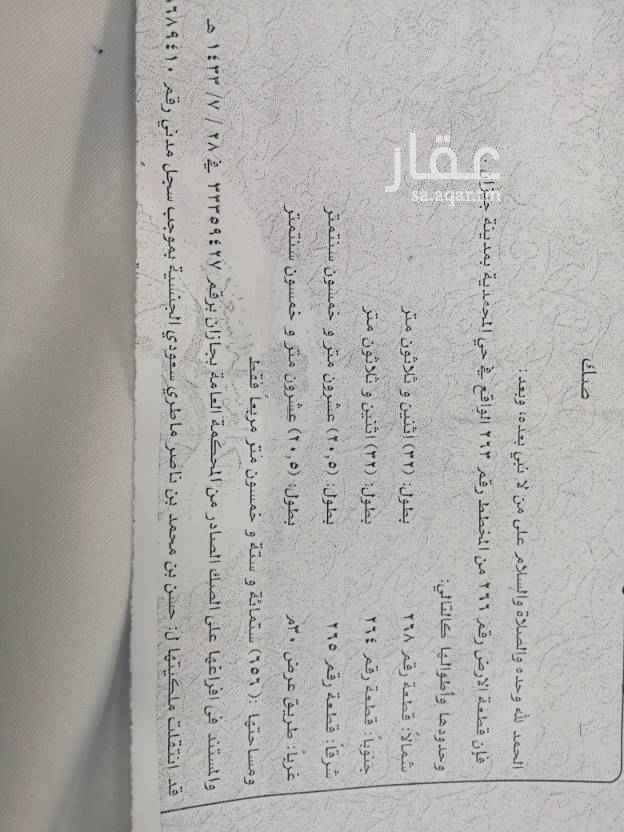 صك
الحمد لله وحده والصلاة والسلام على من لا نبي بعده، وبعد:
فإن قطعة الارض رقم ٢٦٦ من المخطط رقم ٢٦٣ الواقع في حي المحمدية بمدينة جازان .
وحدودها وأطوالها كالتالي:
شمالاً: قطعة رقم ٢٦٨ بطول: (٣٢) اثنين و ثلاثون متر
جنوباً: قطعة رقم ٢٦٤ بطول: (٣٢) اثنين و ثلاثون متر
شرقاً: قطعة رقم ٢٦٥ بطول: (٢٠,٥) عشرون متر و خمسون سنتمتر
غرباً: طريق عرض ٣٠م بطول: (٢٠,٥) عشرون متر و خمسون سنتمتر
ومساحتها : (٦٥٦) ستمائة و ستة و خمسون متر مربعاً فقط
والمستند في افراغها على الصك الصادر من المحكمة العامة بجازان برقم ٣٣٣٥٩٤٢٧ في ٢٨ / ٧ / ١٤٣٣ هـ
قد انتقلت ملكيتها ل: حسن بن محمد بن ناصر ماطري سعودي الجنسية بموجب سجل مدني رقم
عقار
sa.aqar.fm